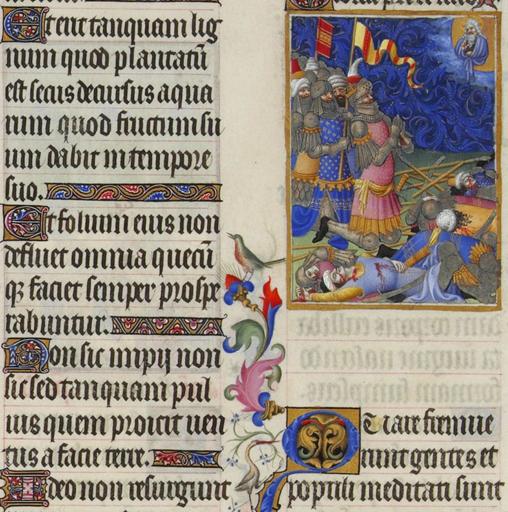 Et erit tanquam lig
num quod plantatū
est secus decursus aqua
rum quod fructum su
um dabit in tempore
suo.
Et folium eius non
defluet omnia quecū
qʒ faciet semper prospe
rabuntur.
Non sic impij non
sic sed tanquam pul
uis quem proicit uen
tus a facie terre.
Ideo non resurgunt
Quare fremue
runt gentes et
populi meditati sunt